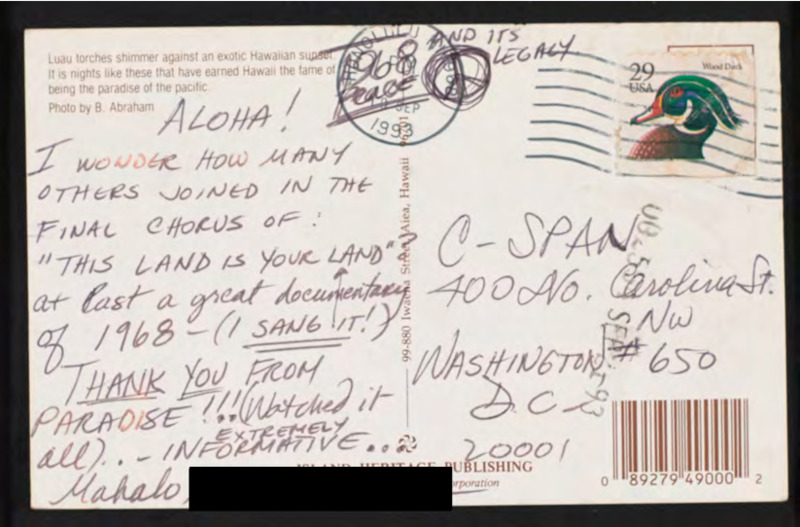 Luau torches shimmer against an exotic Hawaiian sunset.
It is nights like these that have earned Hawaii the fame of
being the paradise of the pacific.
Photo by B. Abraham
HONOLULU
SEP
1993
1968 AND ITS
Peace LEGACY
29
USA
Wood Duck
ALOHA!
I WONDER HOW MANY
OTHERS JOINED IN THE
FINAL CHORUS OF:
"THIS LAND IS YOUR LAND"
at last a great documentary
of 1968 - (I SANG IT!)
THANK YOU FROM
PARADISE!!!.. (Watched it
all)... - EXTREMELY
INFORMATIVE...
Mahalo,
99-880 Iwaena Street, Aiea, Hawaii 96701
C-SPAN
400 No. Carolina St.
NW
WASHINGTON # 650
D.C.
20001
ISLAND HERITAGE PUBLISHING
0 89279 49000 2